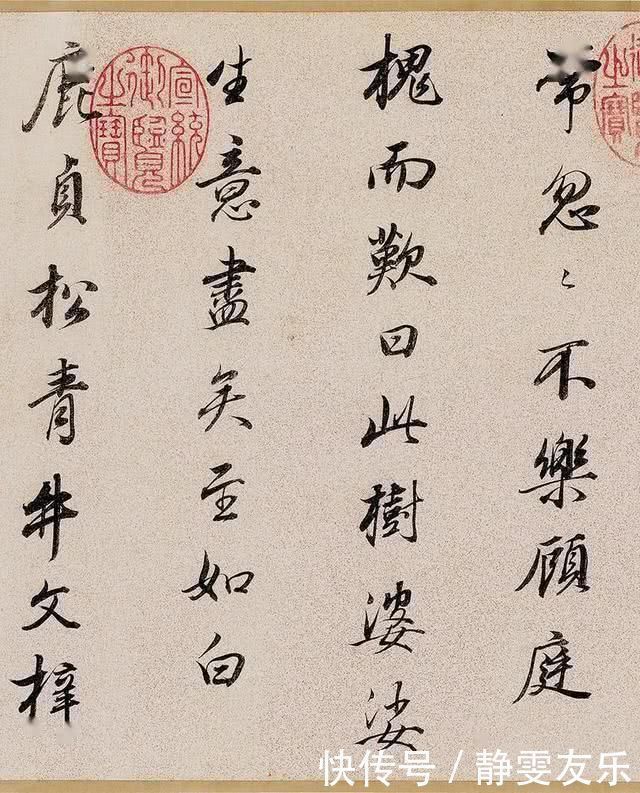 常忽〻不樂顧庭
槐而歎曰此樹婆娑
生意盡矣至如白
鹿貞松青牛文梓
宣統御覽之寶
快传号 / 静雯友乐